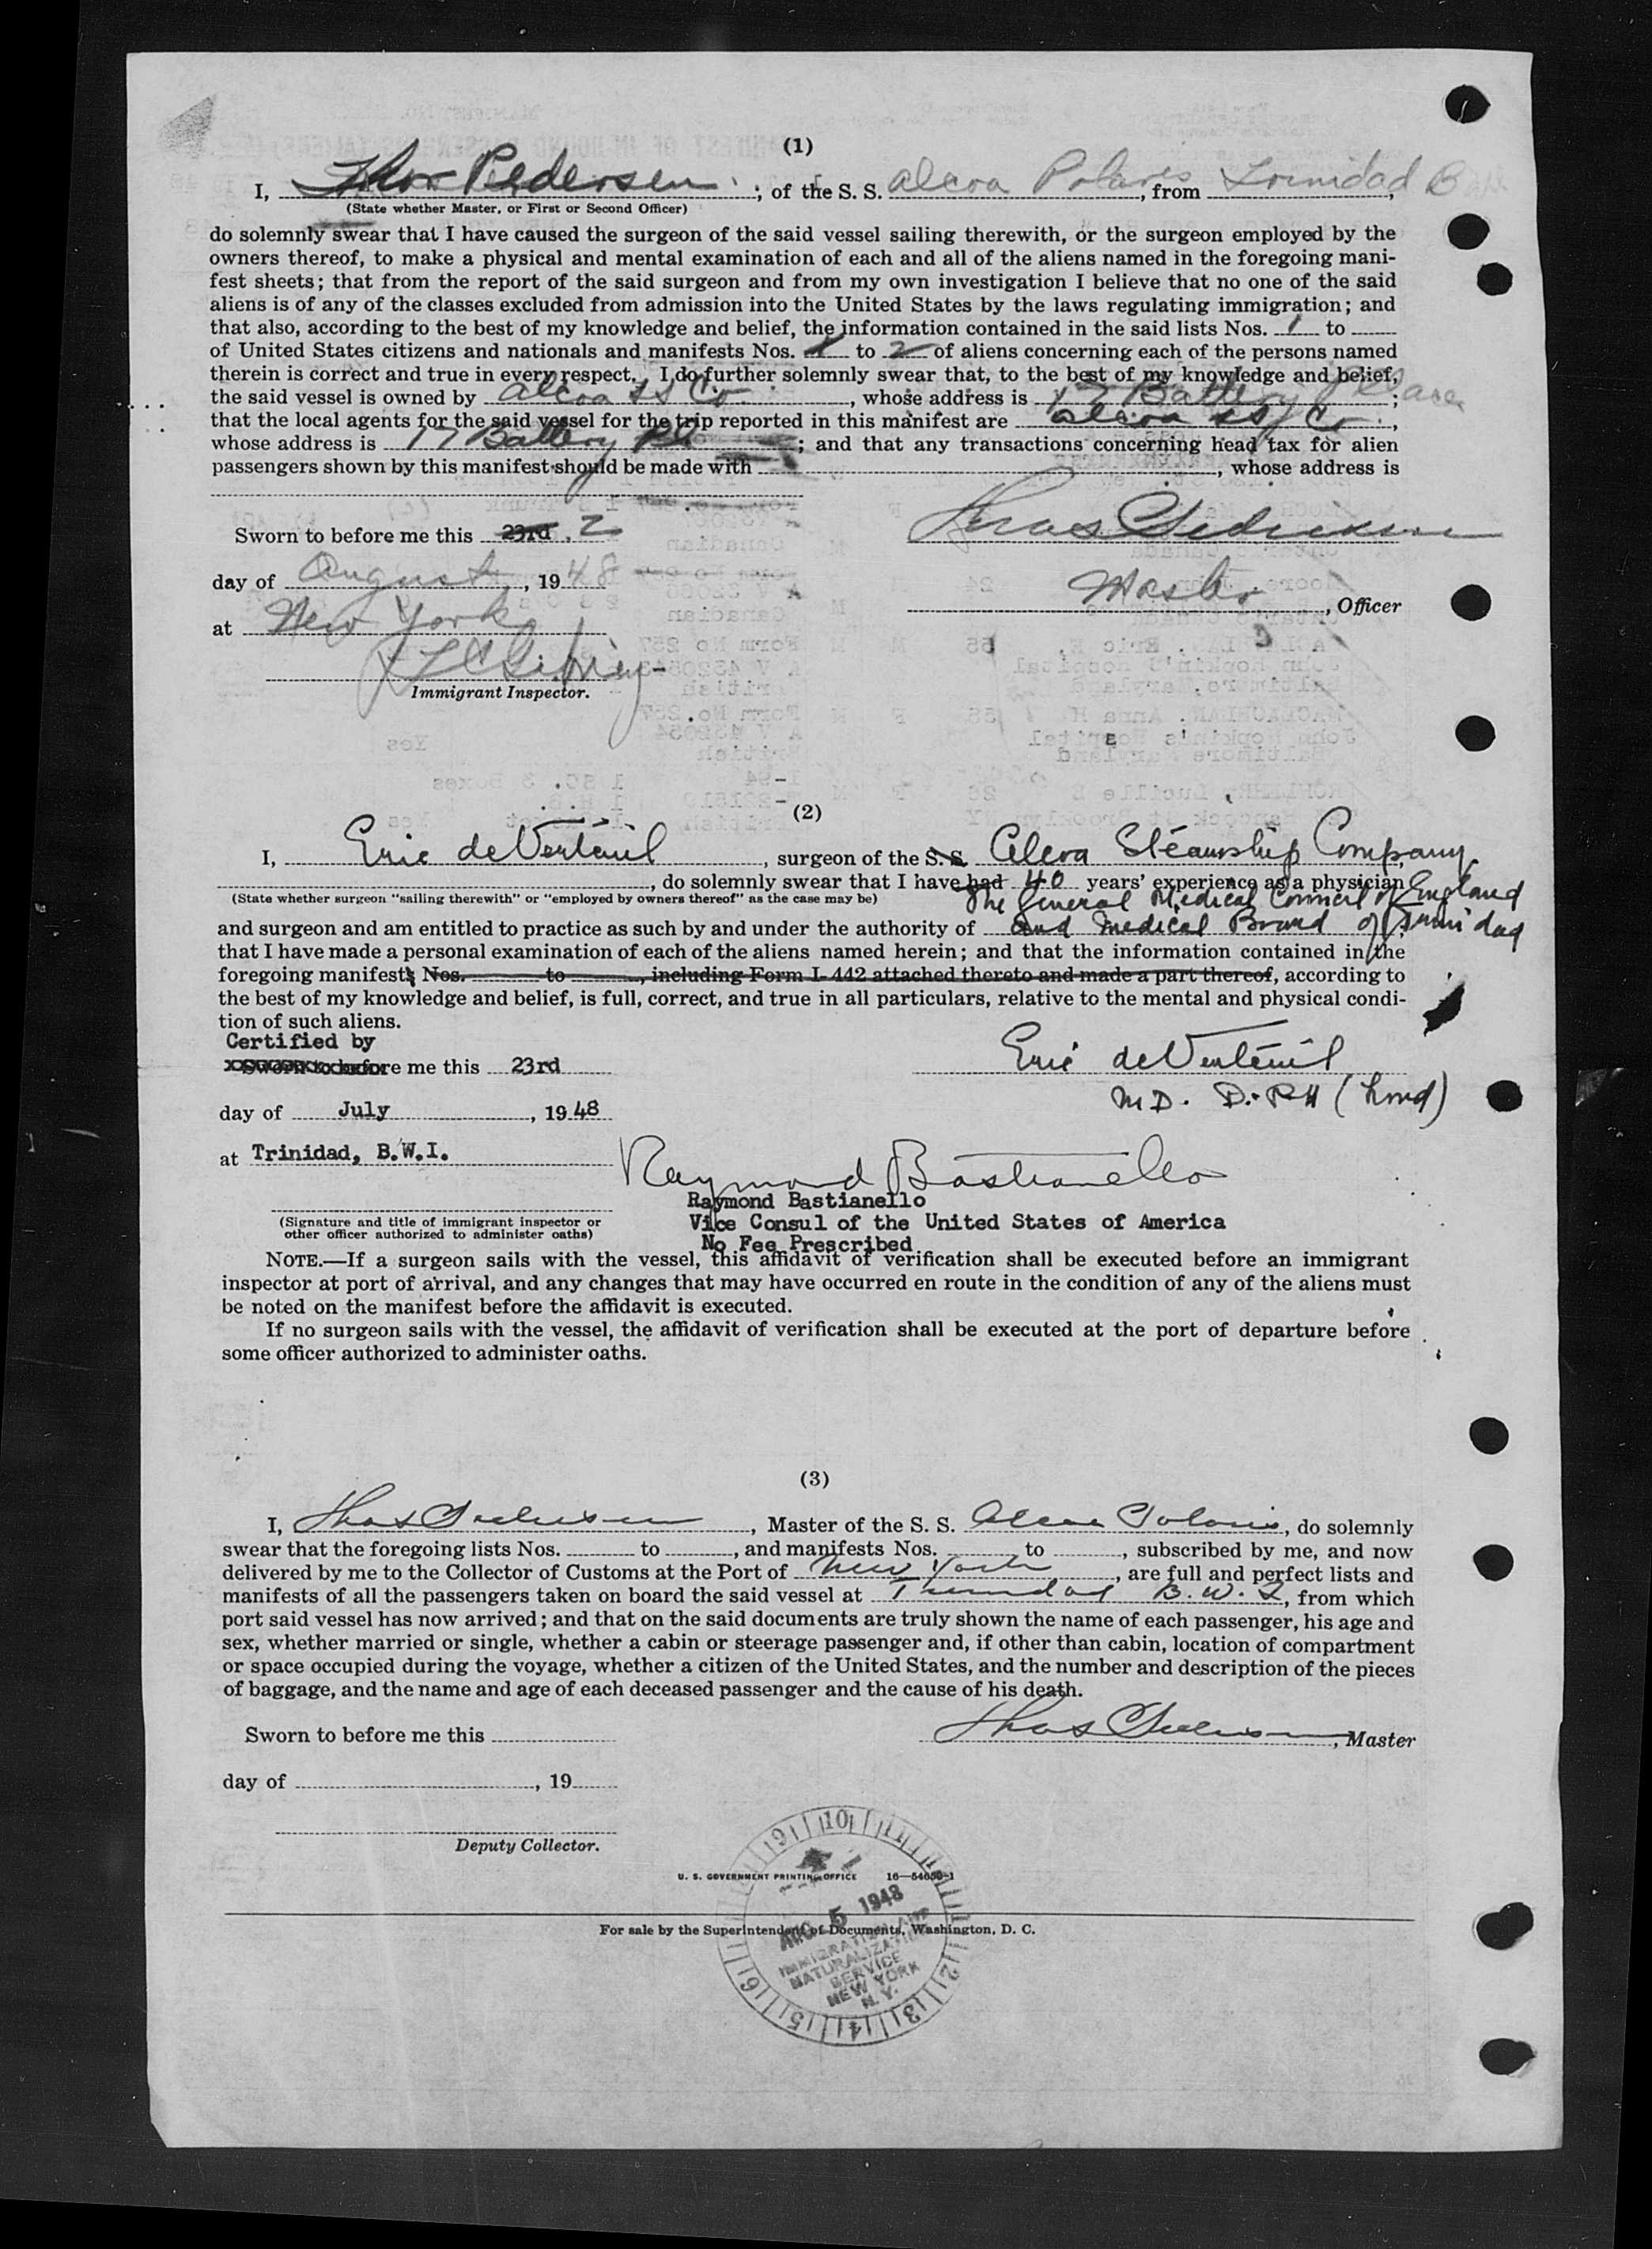 (1)
I, Thos Pedersen ; of the S. S. Alcoa Polaris, from Trinidad B
(State whether Master, or First or Second Officer)
do solemnly swear that I have caused the surgeon of the said vessel sailing therewith, or the surgeon employed by the
owners thereof, to make a physical and mental examination of each and all of the aliens named in the foregoing mani-
fest sheets; that from the report of the said surgeon and from my own investigation I believe that no one of the said
aliens is of any of the classes excluded from admission into the United States by the laws regulating immigration; and
that also, according to the best of my knowledge and belief, the information contained in the said lists Nos. 1 to
of United States citizens and nationals and manifests Nos. 1 to 2 of aliens concerning each of the persons named
therein is correct and true in every respect. I do further solemnly swear that, to the best of my knowledge and belief,
the said vessel is owned by Alcoa SS Co., whose address is 17 Battery Place;
that the local agents for the said vessel for the trip reported in this manifest are Alcoa SS Co.,
whose address is 17 Battery Pl; and that any transactions concerning head tax for alien
passengers shown by this manifest should be made with , whose address is
Sworn to before me this 23rd 2
day of August, 1948
Master, Officer
at New York
Immigrant Inspector.
(2)
I, Eric de Verteuil, surgeon of the S. S. Alcoa Steamship Company,
, do solemnly swear that I have had 40 years' experience as a physician
(State whether surgeon "sailing therewith" or "employed by owners thereof" as the case may be)
The General Medical Council of England
and surgeon and am entitled to practice as such by and under the authority of and Medical Board of Trinidad
that I have made a personal examination of each of the aliens named herein; and that the information contained in the
foregoing manifests Nos. to , including Form I-442 attached thereto and made a part thereof, according to
the best of my knowledge and belief, is full, correct, and true in all particulars, relative to the mental and physical condi-
tion of such aliens.
Certified by
Eric de Verteuil
Sworn to before me this 23rd
M D. D.PH (Lond)
day of July, 1948
at Trinidad, B.W.I.
Raymond Bastianello
Raymond Bastianello
(Signature and title of immigrant inspector or
Vice Consul of the United States of America
other officer authorized to administer oaths)
No Fee Prescribed
NOTE.—If a surgeon sails with the vessel, this affidavit of verification shall be executed before an immigrant
inspector at port of arrival, and any changes that may have occurred en route in the condition of any of the aliens must
be noted on the manifest before the affidavit is executed.
If no surgeon sails with the vessel, the affidavit of verification shall be executed at the port of departure before
some officer authorized to administer oaths.
(3)
I, Thos Pedersen, Master of the S. S. Alcoa Polaris, do solemnly
swear that the foregoing lists Nos. to , and manifests Nos. to , subscribed by me, and now
delivered by me to the Collector of Customs at the Port of New York, are full and perfect lists and
manifests of all the passengers taken on board the said vessel at Trinidad B. W. I, from which
port said vessel has now arrived; and that on the said documents are truly shown the name of each passenger, his age and
sex, whether married or single, whether a cabin or steerage passenger and, if other than cabin, location of compartment
or space occupied during the voyage, whether a citizen of the United States, and the number and description of the pieces
of baggage, and the name and age of each deceased passenger and the cause of his death.
Sworn to before me this
Thos Pedersen, Master
day of , 19
Deputy Collector.
U. S. GOVERNMENT PRINTING OFFICE 16—54659-1
For sale by the Superintendent of Documents, Washington, D. C.
AUG 5 1948
IMMIGRATION AND
NATURALIZATION
SERVICE
NEW YORK
N. Y.